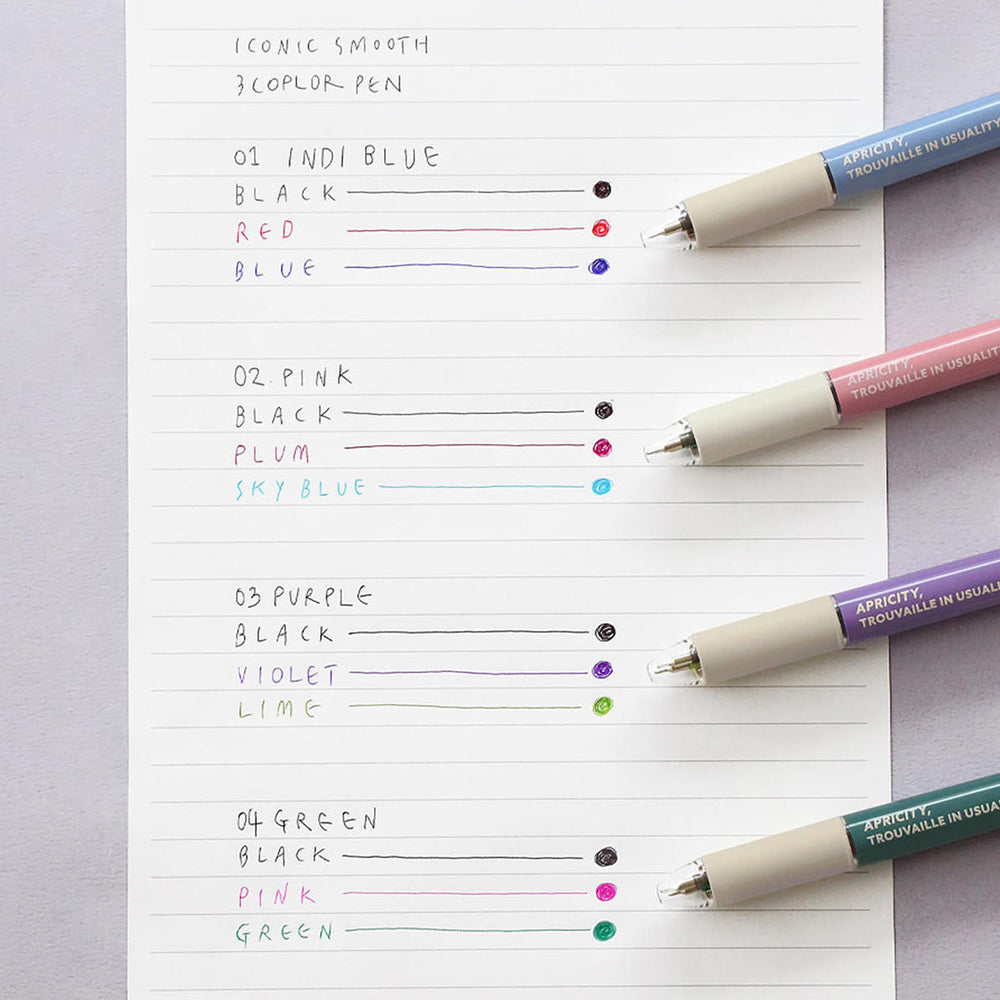 ICONIC SMOOTH
3 COPLOR PEN
01 INDI BLUE
BLACK
RED
BLUE
02. PINK
BLACK
PLUM
SKY BLUE
03 PURPLE
BLACK
VIOLET
LIME
04 GREEN
BLACK
PINK
GREEN
APRICITY,
TROUVAILLE IN USUALITY
APRICITY,
TROUVAILLE IN USUALITY
APRICITY,
TROUVAILLE IN USUALI
APRICITY,
TROUVAILLE IN USUA